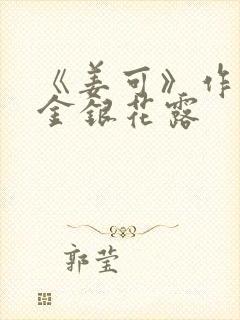 《姜可》作
金银花露
郭莹